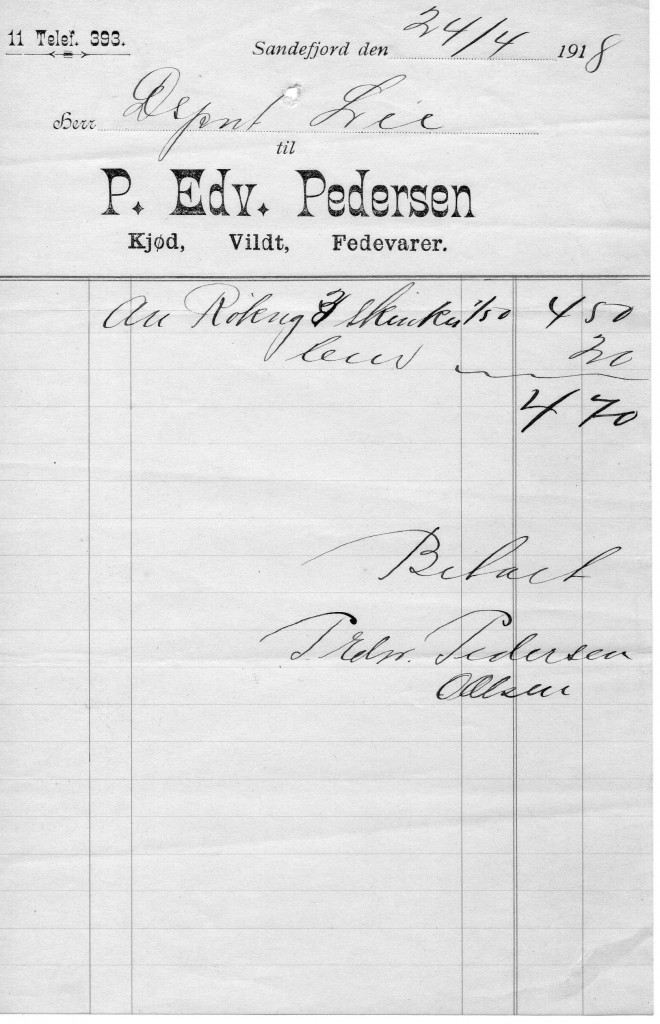 11 Telef. 393.
Sandefjord den 24/4 1918
Herr Dspnt Lie
til
P. Edv. Pedersen
Kjød, Vildt, Fedevarer.
An Rökng 3 Skinker 1/50 4 50
20
4 70
Betalt
P Edv. Pedersen
OOlsen